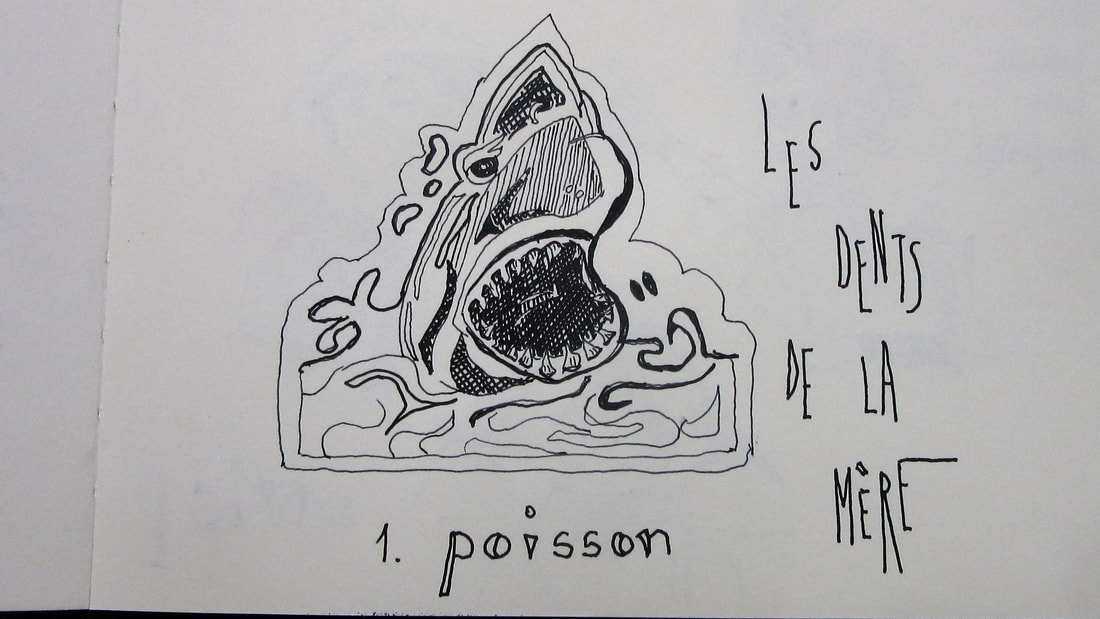 LES
DENTS
DE LA
MÈRE
1. poisson